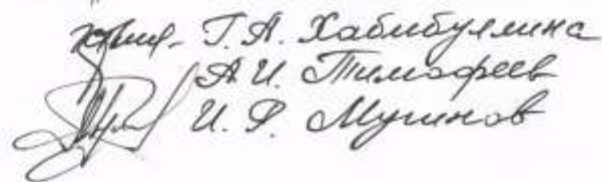 Г. А. Хабибуллина
А. И. Тимофеев
И. Р. Мугинов